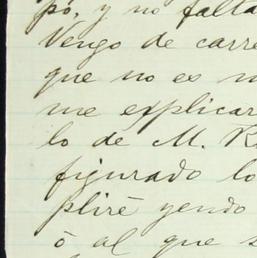 pó, y no falta
Vengo de carre
que no es n
me explicar
lo de M. R
figurado lo
pliré yendo
ó al que s